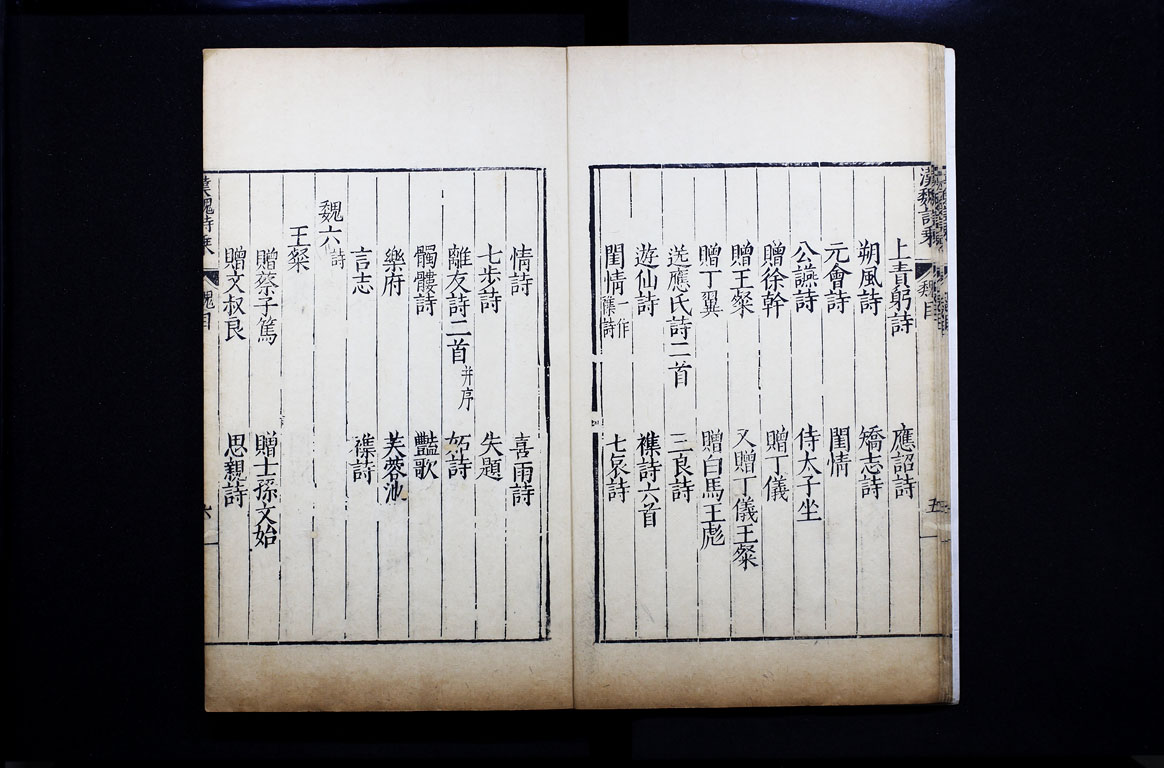 漢魏詩乘 魏目 五
上責躬詩 應詔詩
朔風詩 矯志詩
元會詩 閨情
公讌詩 侍太子坐
贈徐幹 贈丁儀
贈王粲 又贈丁儀王粲
贈丁翼 贈白馬王彪
送應氏詩二首 三良詩
遊仙詩 襍詩六首
閨情一作襍詩 七哀詩
情詩 喜雨詩
七步詩 失題
離友詩二首并序 妬詩
髑髏詩 豔歌
樂府 芙蓉池
言志 襍詩
魏六詩
王粲
贈蔡子篤 贈士孫文始
贈文叔良 思親詩
漢魏詩乘 魏目 六